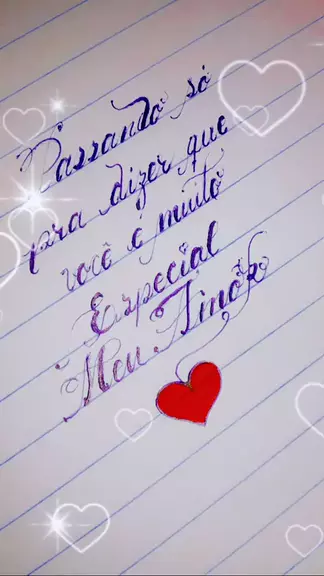 Passando só
pra dizer que
você é muito
Especial
Meu Amor